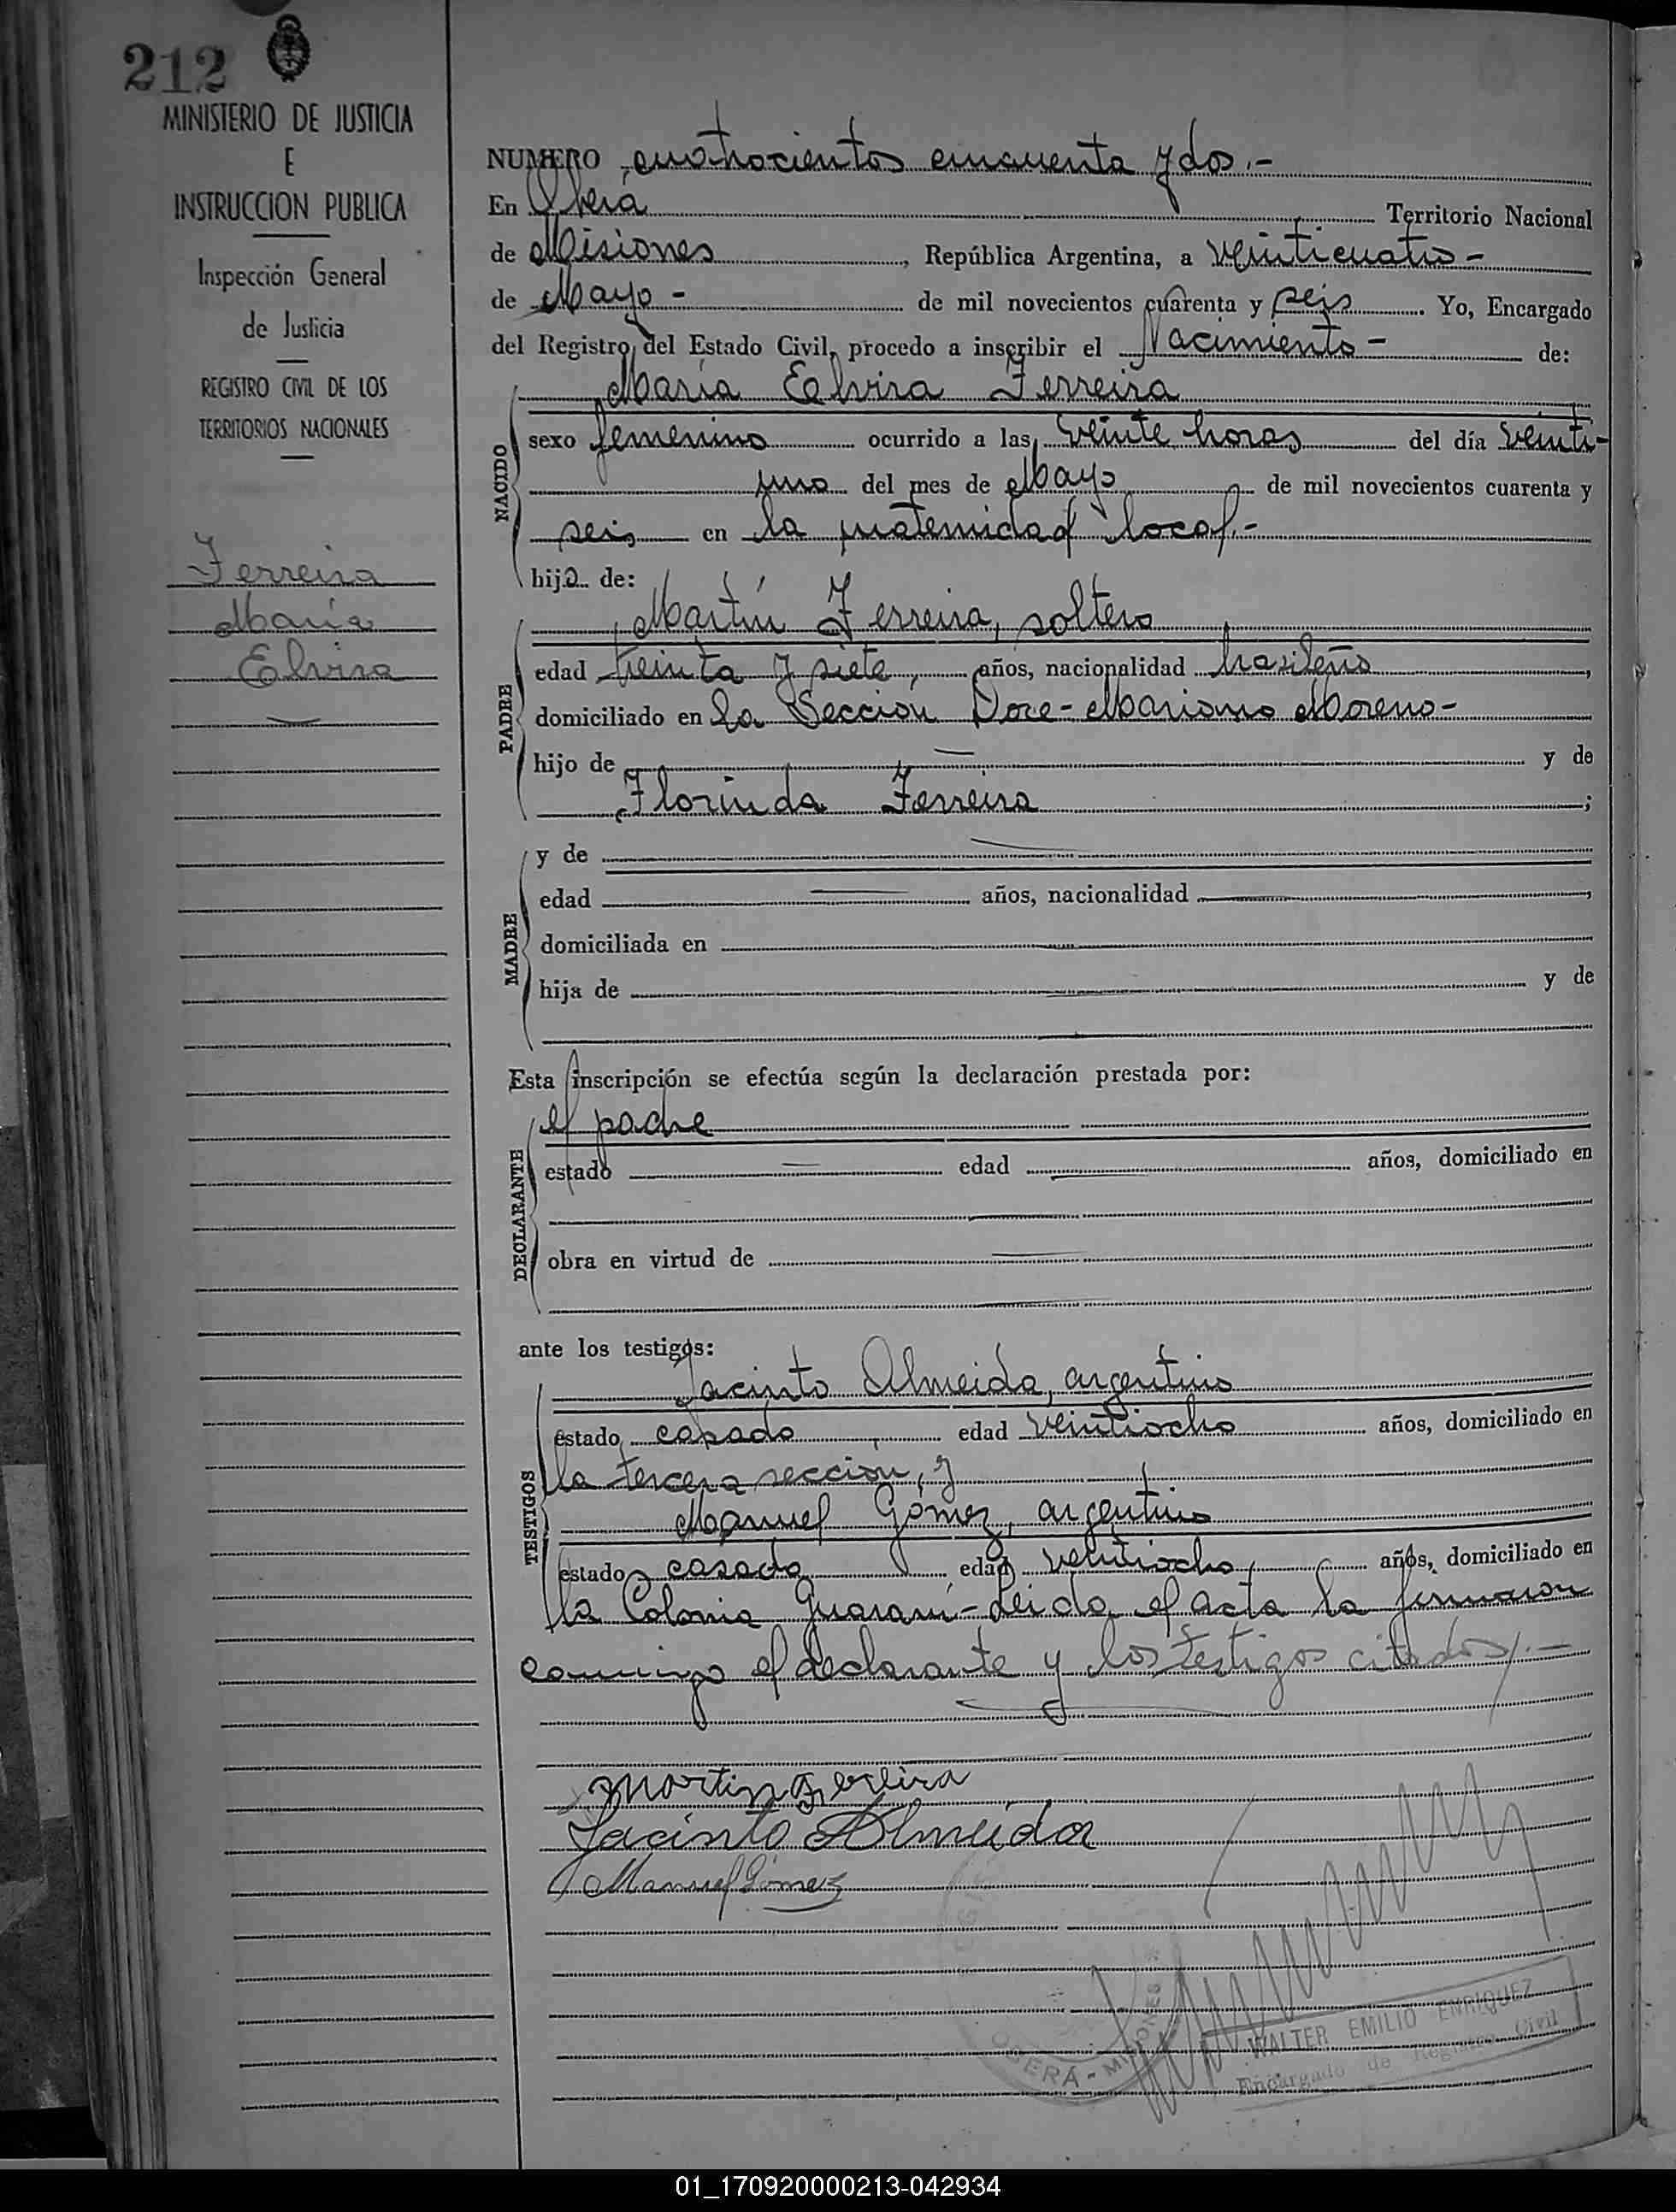 212
MINISTERIO DE JUSTICIA
E
INSTRUCCION PUBLICA
Inspección General
de Justicia
REGISTRO CIVIL DE LOS
TERRITORIOS NACIONALES
Ferreira
María
Elvira
NUMERO cuatrocientos cincuenta y dos.-
En Oberá Territorio Nacional
de Misiones, República Argentina, a veinticuatro-
de Mayo- de mil novecientos cuarenta y seis. Yo, Encargado
del Registro del Estado Civil, procedo a inscribir el Nacimiento- de:
NACIDO
María Elvira Ferreira
sexo femenino ocurrido a las veinte horas del día veinti-
uno del mes de Mayo de mil novecientos cuarenta y
seis en la maternidad local.-
hija de:
PADRE
Martín Ferreira, soltero
edad treinta y siete, años, nacionalidad brasileño,
domiciliado en la Sección Doce-Mariano Moreno-
hijo de — y de
Florinda Ferreira ;
MADRE
y de
edad años, nacionalidad ,
domiciliada en
hija de y de
Esta inscripción se efectúa según la declaración prestada por:
DECLARANTE
el padre
estado edad años, domiciliado en
obra en virtud de
ante los testigos:
TESTIGOS
Jacinto Almeida, argentino
estado casado, edad veintiocho años, domiciliado en
la tercera sección, y
Manuel Gómez, argentino
estado casado edad veintiocho, años, domiciliado en
la Colonia Guaraní-Leida el acta la firmaron
conmigo el declarante y los testigos citados.-
Martin Ferreira
Jacinto Almeida
Manuel Gómez
OBERÁ - MISIONES
WALTER EMILIO ENRIQUEZ
Encargado de Registro Civil
01_170920000213-042934